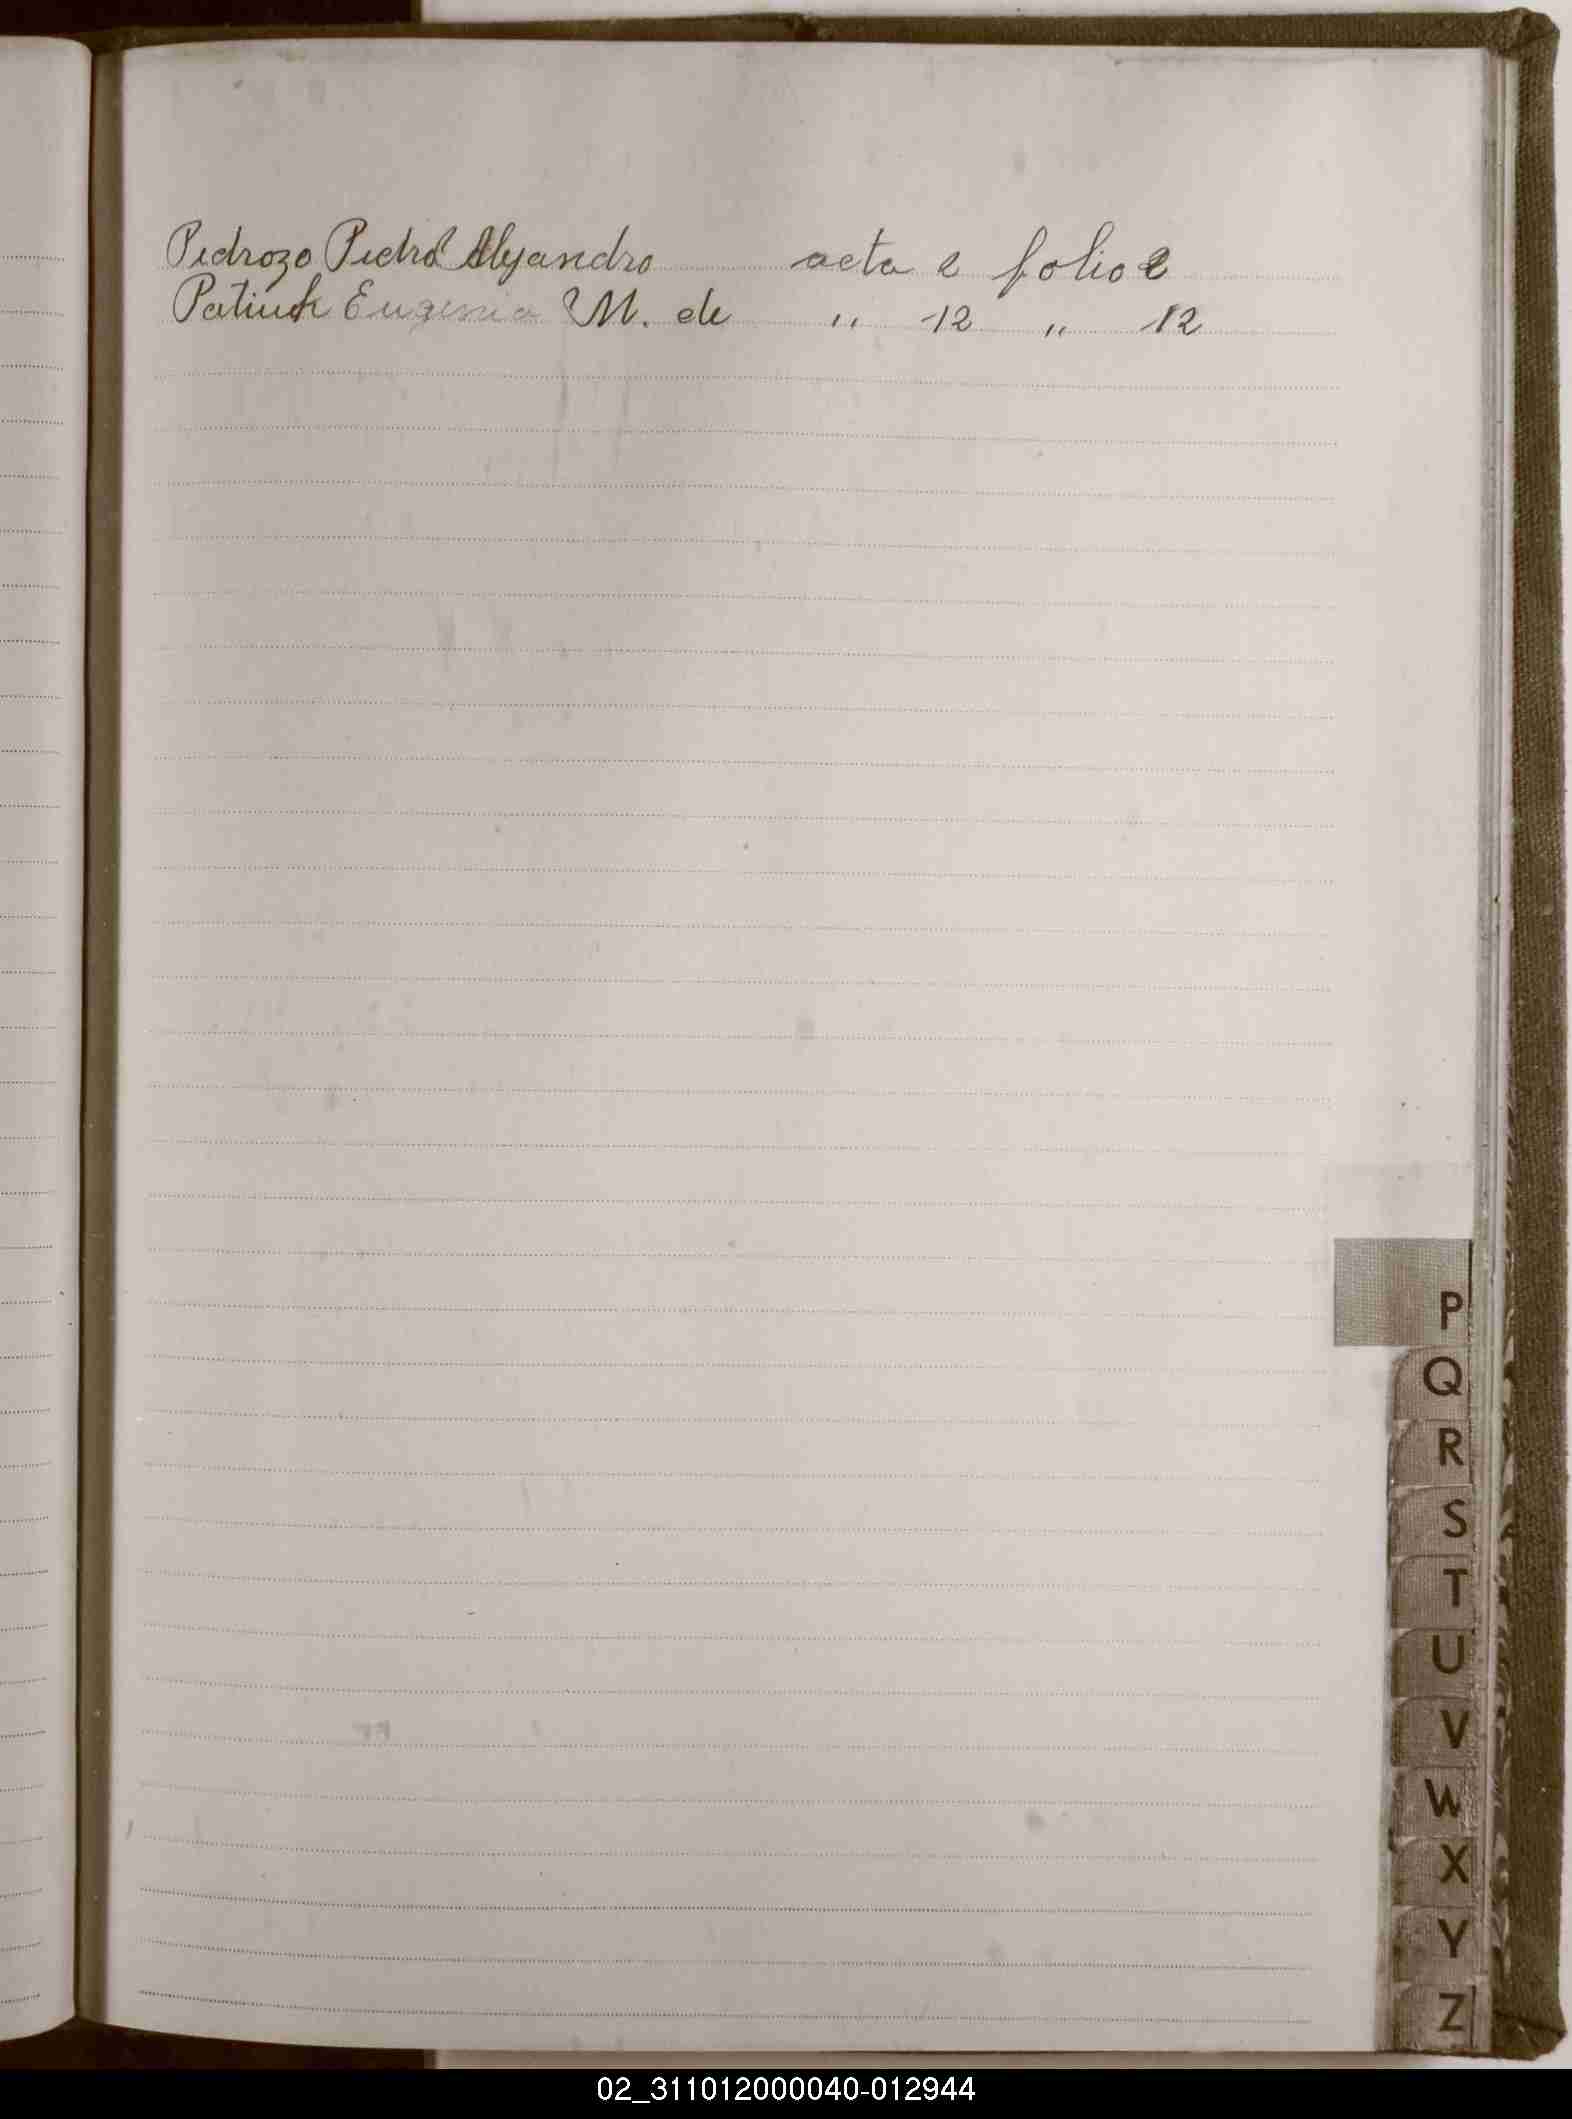 Pedrozo Pedro Alejandro acta 2 folio 2
Patiuk Eugenia M. de " 12 " 12
P
Q
R
S
T
U
V
W
X
Y
Z
02_311012000040-012944